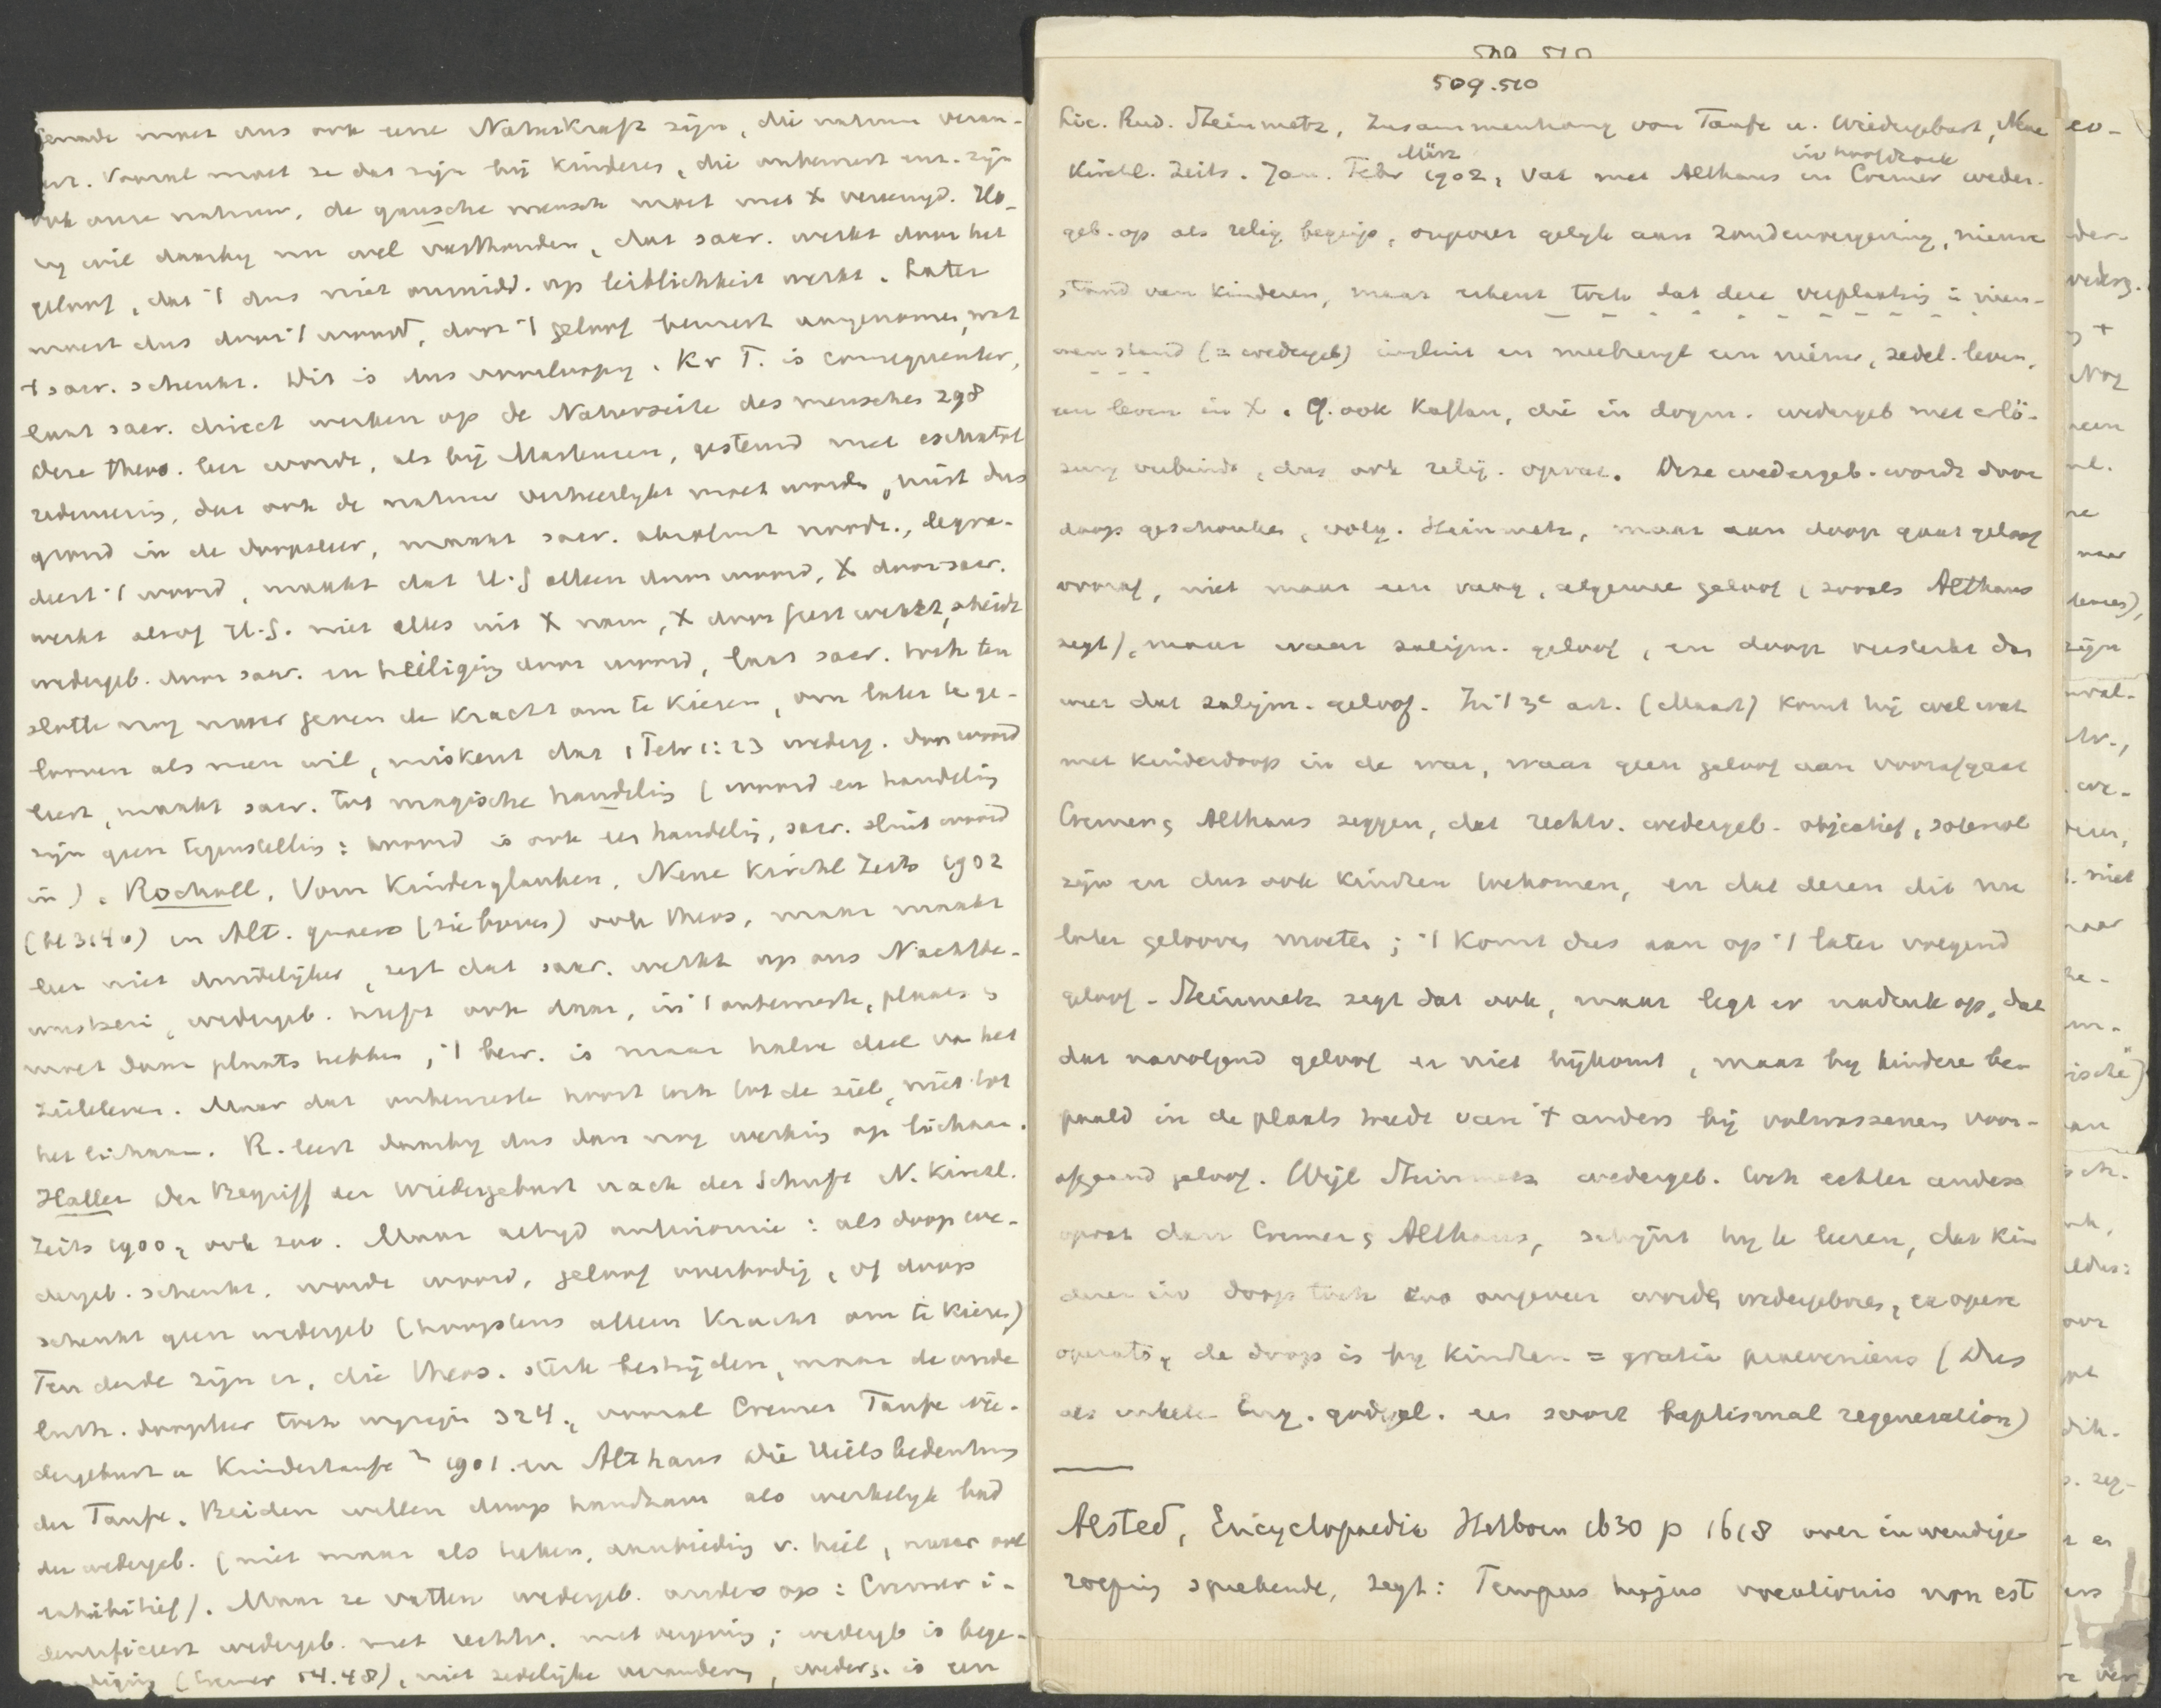 genade moet dus ook eene Naturkraft zijn, die natuur veran-
Vooral moet ze dat zijn bij kinderen, die onbewust zijn
ook onze natuur, de gansche mensch moet met X vereenigd. Ho-
wil daarby nu wel vasthouden, dat sacr. werkt door het
geloof, dat 't dus niet onmidd. op leiblichkeit werkt. Later
moet dus door 't woord, door 't geloof bewust aangenomen, wat
't sacr. schenkt. Dit is dus voorloopig. Kr T. is consequenter,
laat sacr. direct werken op de Naturseite des menschen 298
Deze theos. leer wordt, als bij Martensen, gesteund met eschatol
redeneering, dat ook de natuur verheerlykt moet worden, mist dus
grond in de doopsleer, maakt sacr. absoluut noodz., degra-
deert 't woord, maakt dat H.G alleen door woord, X door sacr.
werkt alsof H.G. niet alles uit X nam, X door geest werkt, scheidt
wedergeb. door sacr. en heiliging door woord, laat sacr. toch ten
slotte nog maar geven de kracht om te kiezen, om later te ge-
looven als men wil, miskent dat 1 Petr 1:23 wederg. door woord
leert, maakt sacr. tot magische handeling (woord en handeling
zijn geen tegenstelling: woord is ook een handeling, sacr. sluit woord
in). Rocholl, Vom Kinderglauben, Neue Kirchl Zeits 1902
en Alt. (zie boven) ook theos, maar maakt
leer niet duidelijker, zegt dat sacr. werkt op ons Nachtbe-
wustsein, wedergeb. heeft ook daar, in 't onbewuste, plaats &
moet daar plaats hebben, 't bew. is maar halve deel van het
zieleleven. Maar dat onbewuste hoort toch tot de ziel, niet tot
het lichaam. R. leert daarby dus dan nog werking op lichaam.
Haller Der Begriff der Wiedergeburt nach der Schrift N. Kirchl.
Zeits 1900, ook zoo. Maar altyd antinomie: als doop we-
dergeb. schenkt, wordt woord, geloof overbodig, of doop
schenkt geen wedergeb (hoogstens alleen kracht om te kiezen)
Ten derde zijn er, die theos. sterk bestrijden, maar de oude
luth. doopleer toch wyzigen 324, vooral Cremer Taufe Wie-
dergeburt u Kindertaufe 2 1901. en Althaus Die Heilsbedeutung
der Taufe. Beiden willen doop handhaven als werkelyk bad
der wedergeb. (niet maar als teken, aanbieding v. heil, maar ook
exhibitief). Maar ze vatten wedergeb. anders op: Cremer i-
dentificeert wedergeb. met rechtv. met vergeving; wedergeb is bege-
nadiging (Cremer 54.48), niet zedelijke verandering, wederg. is een
509.510
509.510
Lic. Rud. Steinmetz, Zusammenhang von Taufe u. Wiedergeburt, Neue
Kirchl. Zeits. Jan. Febr März 1902, vat met Althaus en Cremer in hoofdzaak weder-
geb. op als relig begrip, ongeveer gelyk aan zondenvergeving, nieuwe
stand van kinderen, maar erkent toch dat deze verplaatsing in nieu-
wen stand (= wedergeb) insluit en meebrengt een nieuw, zedel. leven,
een leven in X. Cf. ook Kaftan, die in dogm. wedergeb met erlö-
sung verbindt, dus ook relig. opvat. Deze wedergeb. wordt door
doop geschonken, volg. Steinmetz, maar aan doop gaat geloof
vooraf, niet maar een vaag, algemeen geloof (zooals Althaus
zegt), maar waar zaligm. geloof, en doop versterkt dan
weer dat zaligm. geloof. In 't 3e art. (Maart) komt hij wel wat
met kinderdoop in de war, waar geen geloof aan voorafgaat
Cremer & Althaus zeggen, dat rechtv. wedergeb. objectief, sacrament
zijn en dus ook kindren toekomen, en dat deren dit nu
later gelooven moeten; 't komt dus aan op 't later volgend
geloof. Steinmetz zegt dat ook, maar legt er nadruk op, dat
dat navolgend geloof er niet bijkomt, maar by kinderen be-
paald in de plaats treedt van 't anders bij volwassenen voor-
afgaand geloof. Wijl Steinmetz wedergeb. toch echter anders
opvat dan Cremer & Althaus, schijnt hy te leeren, dat kin
deren in doop toch zoo ongeveer worden wedergeboren, ex opere
operato, de doop is by kindren = gratia praeveniens (Dus
als enkele Eng. godgel. een soort baptismal regeneration)
Alsted, Encyclopaedia Herborn 1630 p 1618 over inwendige
roeping sprekende, zegt: Tempus hujus vocationis non est